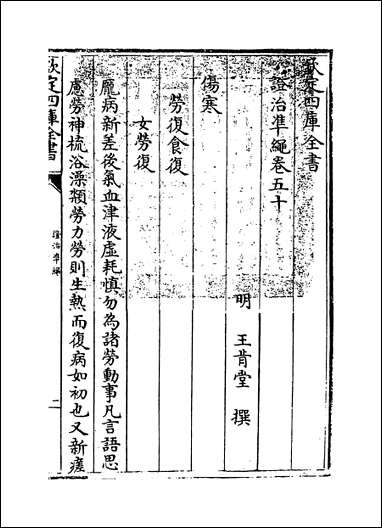 欽定四庫全書
證治凖繩卷五十
明 王肯堂 撰
傷寒
勞復食復
女勞復
龎病新差後氣血津液虛耗慎勿為諸勞動事凡言語思
慮勞神梳浴澡頮勞力勞則生熱而復病如初也又新瘥
欽定四庫全書
證治凖繩